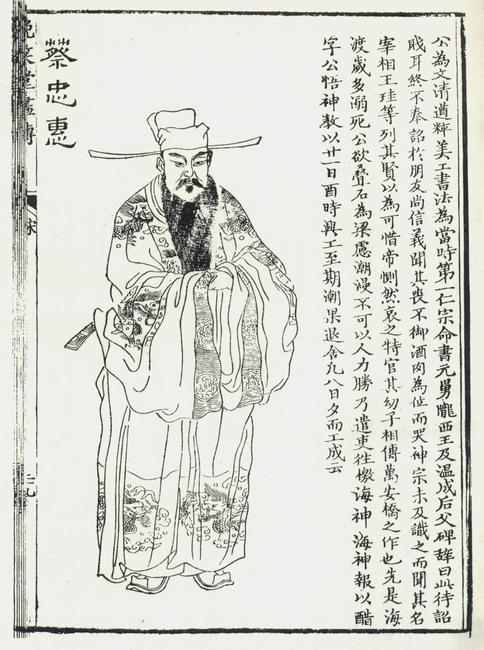 公為文清遒粹美工書法為當時第一仁宗命書元舅隴西王及温成后父碑辭曰此待詔
職耳終不奉詔於朋友尚信義聞其喪不御酒肉為位而哭神宗未及識之而聞其名
宰相王珪等列其賢以為可惜帝惻然哀之特官其幼子相傳萬安橋之作也先是海
渡歲多溺死公欲疊石為梁慮潮漫不可以人力勝乃遣吏往檄海神海神報以醋
字公悟神教以廿一日酉時興工至期潮果退舍凡八日夕而工成云
蔡忠惠